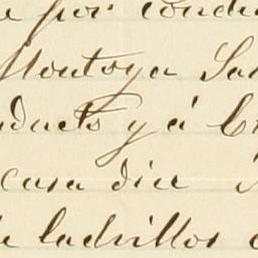 e por condu
Montoya Sa
ducto y á C
casa dice
e ladrillos c